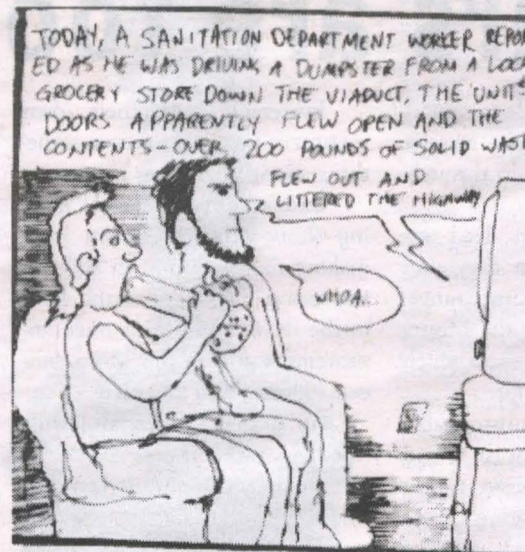 TODAY, A SANITATION DEPARTMENT WORKER REPOR
ED AS HE WAS DRIVING A DUMPSTER FROM A LOCA
GROCERY STORE DOWN THE VIADUCT, THE UNIT'S
DOORS APPARENTLY FLEW OPEN AND THE
CONTENTS - OVER 200 POUNDS OF SOLID WASTE
FLEW OUT AND
LITTERED THE HIGHWAY
WHOA.